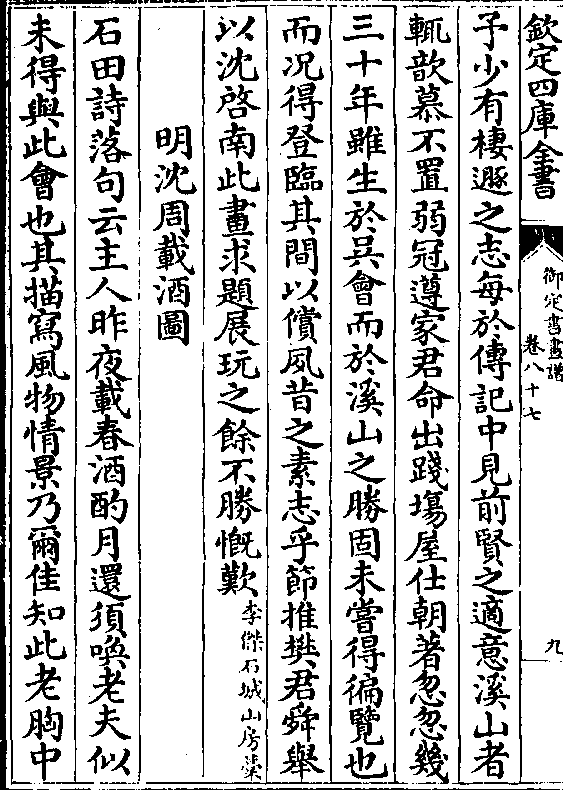 欽定四庫全書
御定書畫譜
卷八十七
九
予少有棲遯之志每於傳記中見前賢之適意溪山者
輒歆慕不置弱冠遵家君命出踐塲屋仕朝著忽忽幾
三十年雖生於吳會而於溪山之勝固未嘗得徧覽也
而況得登臨其間以償夙昔之素志乎節推樊君舜舉
以沈啓南此畫求題展玩之餘不勝慨歎李傑石城山房藁
明沈周載酒圖
石田詩落句云主人昨夜載春酒酌月還須喚老夫似
未得與此會也其描寫風物情景乃爾佳知此老胸中